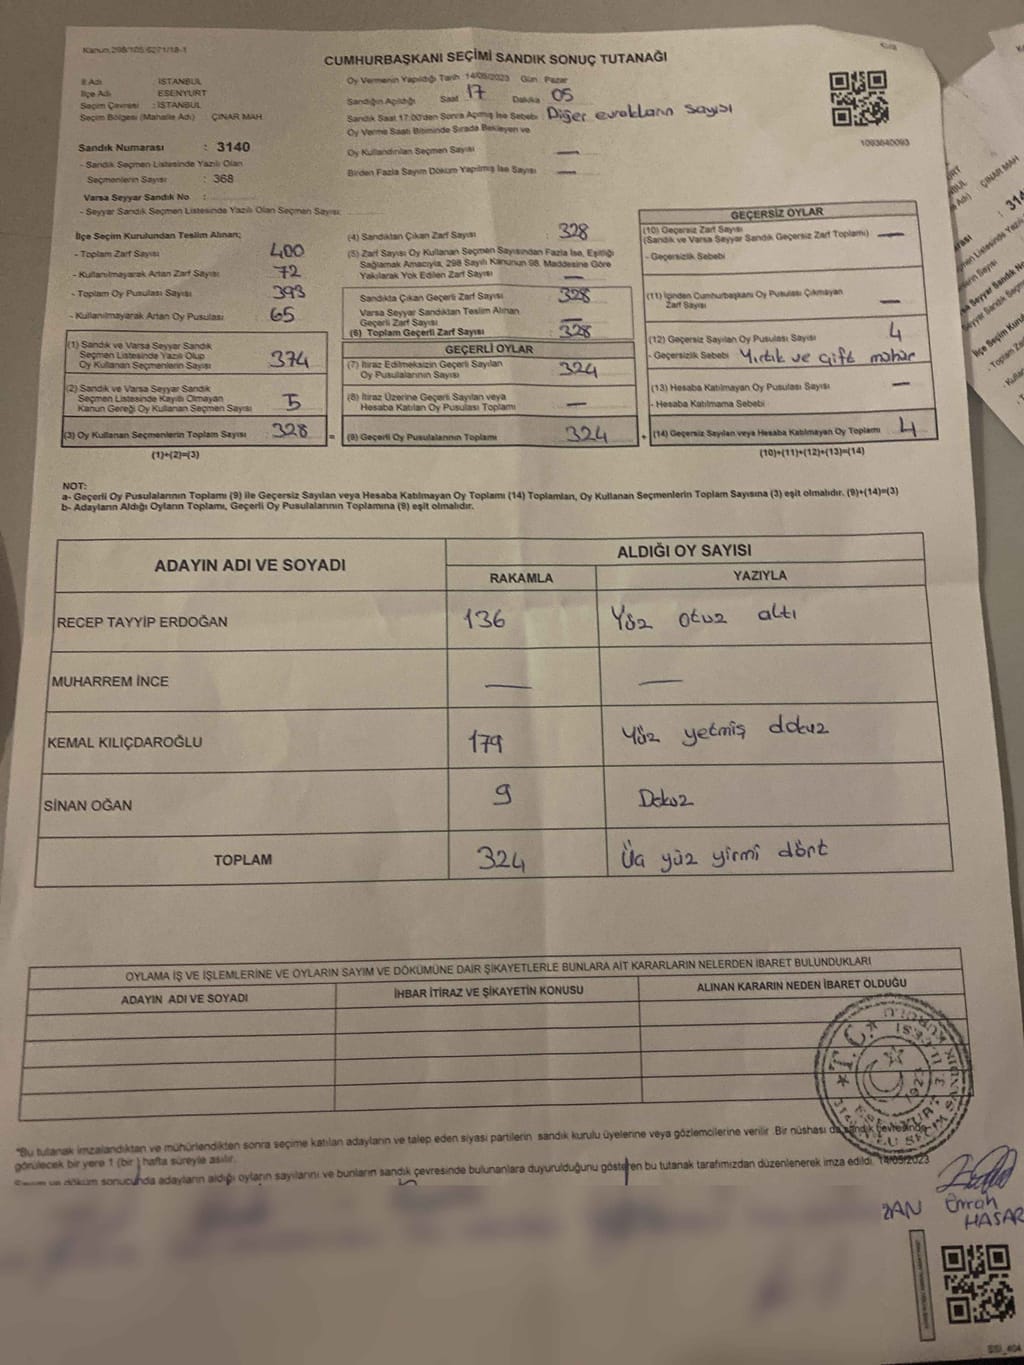 Kanun:298/105;6271/18-1
CUMHURBAŞKANI SEÇİMİ SANDIK SONUÇ TUTANAĞI
İl Adı : İSTANBUL
İlçe Adı : ESENYURT
Seçim Çevresi : İSTANBUL
Seçim Bölgesi (Mahalle Adı) : ÇINAR MAH.
Sandık Numarası : 3140
- Sandık Seçmen Listesinde Yazılı Olan
Seçmenlerin Sayısı : 368
Varsa Seyyar Sandık No :
- Seyyar Sandık Seçmen Listesinde Yazılı Olan Seçmen Sayısı:
Oy Vermenin Yapıldığı Tarih :14/05/2023 Gün : Pazar
Sandığın Açıldığı Saat : 17 Dakika : 05
Sandık Saat 17:00'den Sonra Açmış İse Sebebi : Diğer evrakların sayısı
Oy Verme Saati Bitiminde Sırada Bekleyen ve
Oy Kullandırılan Seçmen Sayısı —
Birden Fazla Sayım Döküm Yapılmış İse Sayısı —
1093640093
İlçe Seçim Kurulundan Teslim Alınan;
- Toplam Zarf Sayısı : 400
- Kullanılmayarak Artan Zarf Sayısı : 72
- Toplam Oy Pusulası Sayısı : 393
- Kullanılmayarak Artan Oy Pusulası : 65
(1) Sandık ve Varsa Seyyar Sandık
Seçmen Listesinde Yazılı Olup
Oy Kullanan Seçmenlerin Sayısı : 374
(2) Sandık ve Varsa Seyyar Sandık
Seçmen Listesinde Kayıtlı Olmayan
Kanun Gereği Oy Kullanan Seçmen Sayısı : 5
(3) Oy Kullanan Seçmenlerin Toplam Sayısı : 328
(1)+(2)=(3)
(4) Sandıktan Çıkan Zarf Sayısı : 328
(5) Zarf Sayısı Oy Kullanan Seçmen Sayısından Fazla İse, Eşitliği
Sağlamak Amacıyla, 298 Sayılı Kanunun 98. Maddesine Göre
Yakılarak Yok Edilen Zarf Sayısı —
Sandıkta Çıkan Geçerli Zarf Sayısı : 328
Varsa Seyyar Sandıktan Teslim Alınan
Geçerli Zarf Sayısı —
(6) Toplam Geçerli Zarf Sayısı : 328
GEÇERLİ OYLAR
(7) İtiraz Edilmeksizin Geçerli Sayılan
Oy Pusulalarının Sayısı : 324
(8) İtiraz Üzerine Geçerli Sayılan veya
Hesaba Katılan Oy Pusulası Toplamı : —
= (9) Geçerli Oy Pusulalarının Toplamı : 324
GEÇERSİZ OYLAR
(10) Geçersiz Zarf Sayısı
(Sandık ve Varsa Seyyar Sandık Geçersiz Zarf Toplamı) —
- Geçersizlik Sebebi
(11) İçinden Cumhurbaşkanı Oy Pusulası Çıkmayan
Zarf Sayısı —
(12) Geçersiz Sayılan Oy Pusulası Sayısı : 4
- Geçersizlik Sebebi : Yırtık ve çift mühür
(13) Hesaba Katılmayan Oy Pusulası Sayısı —
- Hesaba Katılmama Sebebi
+ (14) Geçersiz Sayılan veya Hesaba Katılmayan Oy Toplamı 4
(10)+(11)+(12)+(13)=(14)
NOT:
a- Geçerli Oy Pusulalarının Toplamı (9) ile Geçersiz Sayılan veya Hesaba Katılmayan Oy Toplamı (14) Toplamları, Oy Kullanan Seçmenlerin Toplam Sayısına (3) eşit olmalıdır. (9)+(14)=(3)
b- Adayların Aldığı Oyların Toplamı, Geçerli Oy Pusulalarının Toplamına (9) eşit olmalıdır.
ADAYIN ADI VE SOYADI
ALDIĞI OY SAYISI
RAKAMLA YAZIYLA
RECEP TAYYİP ERDOĞAN 136 Yüz otuz altı
MUHARREM İNCE — —
KEMAL KILIÇDAROĞLU 179 Yüz yetmiş dokuz
SİNAN OĞAN 9 Dokuz
TOPLAM 324 Üç yüz yirmi dört
OYLAMA İŞ VE İŞLEMLERİNE VE OYLARIN SAYIM VE DÖKÜMÜNE DAİR ŞİKAYETLERLE BUNLARA AİT KARARLARIN NELERDEN İBARET BULUNDUKLARI
ADAYIN ADI VE SOYADI İHBAR İTİRAZ VE ŞİKAYETİN KONUSU ALINAN KARARIN NEDEN İBARET OLDUĞU
T.C.
1923
*Bu tutanak imzalandıktan ve mühürlendikten sonra seçime katılan adayların ve talep eden siyasi partilerin sandık kurulu üyelerine veya gözlemcilerine verilir. Bir nüshası da sandık çevresinde
görülecek bir yere 1 (bir) hafta süreyle asılır.
Seçim ve döküm sonucunda adayların aldığı oyların sayılarını ve bunların sandık çevresinde bulunanlara duyurulduğunu gösteren bu tutanak tarafımızdan düzenlenerek imza edildi. 14/05/2023
Emrah
HASAR